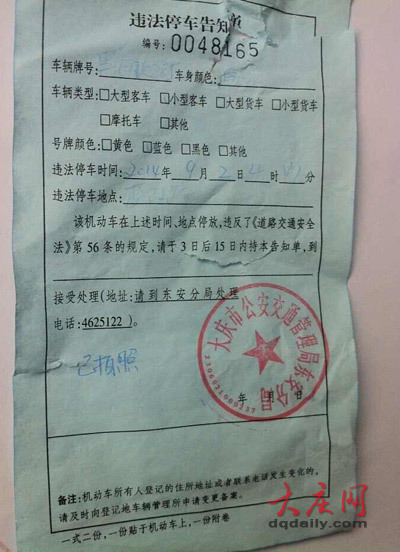 违法停车告知单
编号: 0048165
车辆牌号: 车身颜色:
车辆类型: □大型客车 □小型客车 □大型货车 □小型货车
□摩托车 □其他
号牌颜色: □黄色 □蓝色 □黑色 □其他
违法停车时间: 2014 年 9 月 2 日 时 分
违法停车地点:
该机动车在上述时间、地点停放,违反了《道路交通安全
法》第 56 条的规定,请于 3 日后 15 日内持本告知单,到
接受处理(地址: 请到东安分局处理
电话: 4625122 )。
大庆市公安交通管理局东安分局
已拍照
年 月 日
备注: 机动车所有人登记的住所地址或者联系电话发生变化的,
请及时向登记地车辆管理所申请变更备案。
一式二份,一份贴于机动车上,一份附卷
大庆网
dqdaily.com